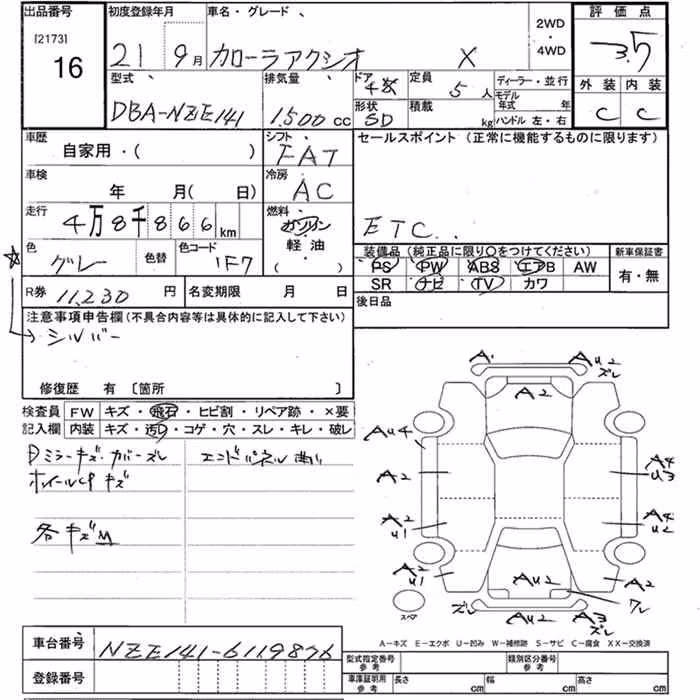 出品番号 初度登録年月 車名・グレード 評価点
[2173] 16 21 9月 カローラアクシオ X 2WD・4WD 3.5
型式 排気量 ドア 定員 ディーラー・並行 外装 内装
DBA-NZE141 1,500cc 4枚 5人 モデル年式 年 C C
形状 SD 積載 kg ハンドル 左・右
車歴 シフト セールスポイント(正常に機能するものに限ります)
自家用・( ) FAT
車検 冷房
年 月( 日) AC
走行 燃料
4万8千866km ガソリン ETC..
軽油
( )
色 色替 色コード 装備品(純正品に限り○をつけてください) 新車保証書
グレー 1F7 PS PW ABS エアB AW 有・無
SR ナビ TV カワ
R券 11,230円 名変期限 月 日 後日品
注意事項申告欄(不具合内容等は具体的に記入して下さい)
☆→シルバー
修復歴 有〔箇所 〕
検査員 FW キズ・飛石・ヒビ割・リペア跡・×要
記入欄 内装 キズ・汚れ・コゲ・穴・スレ・キレ・破レ
Dミラーキズ・カバーズレ エンドパネル曲り
ホイールCPキズ
各キズM
A AU2 ズレ
A2
AU4
A2 A4 U3
A2 U1 A4 U2
A2 U1 AU2 A2
ワレ
スペア ズレ AU2 A3 ズレ
A-キズ E-エクボ U-凹み W-補修跡 S-サビ C-腐食 XX-交換済
車台番号 NZE141-6119876
登録番号
型式指定番号 参考 類別区分番号 参考
車庫証明用 参考 長さ cm 幅 cm 高さ cm